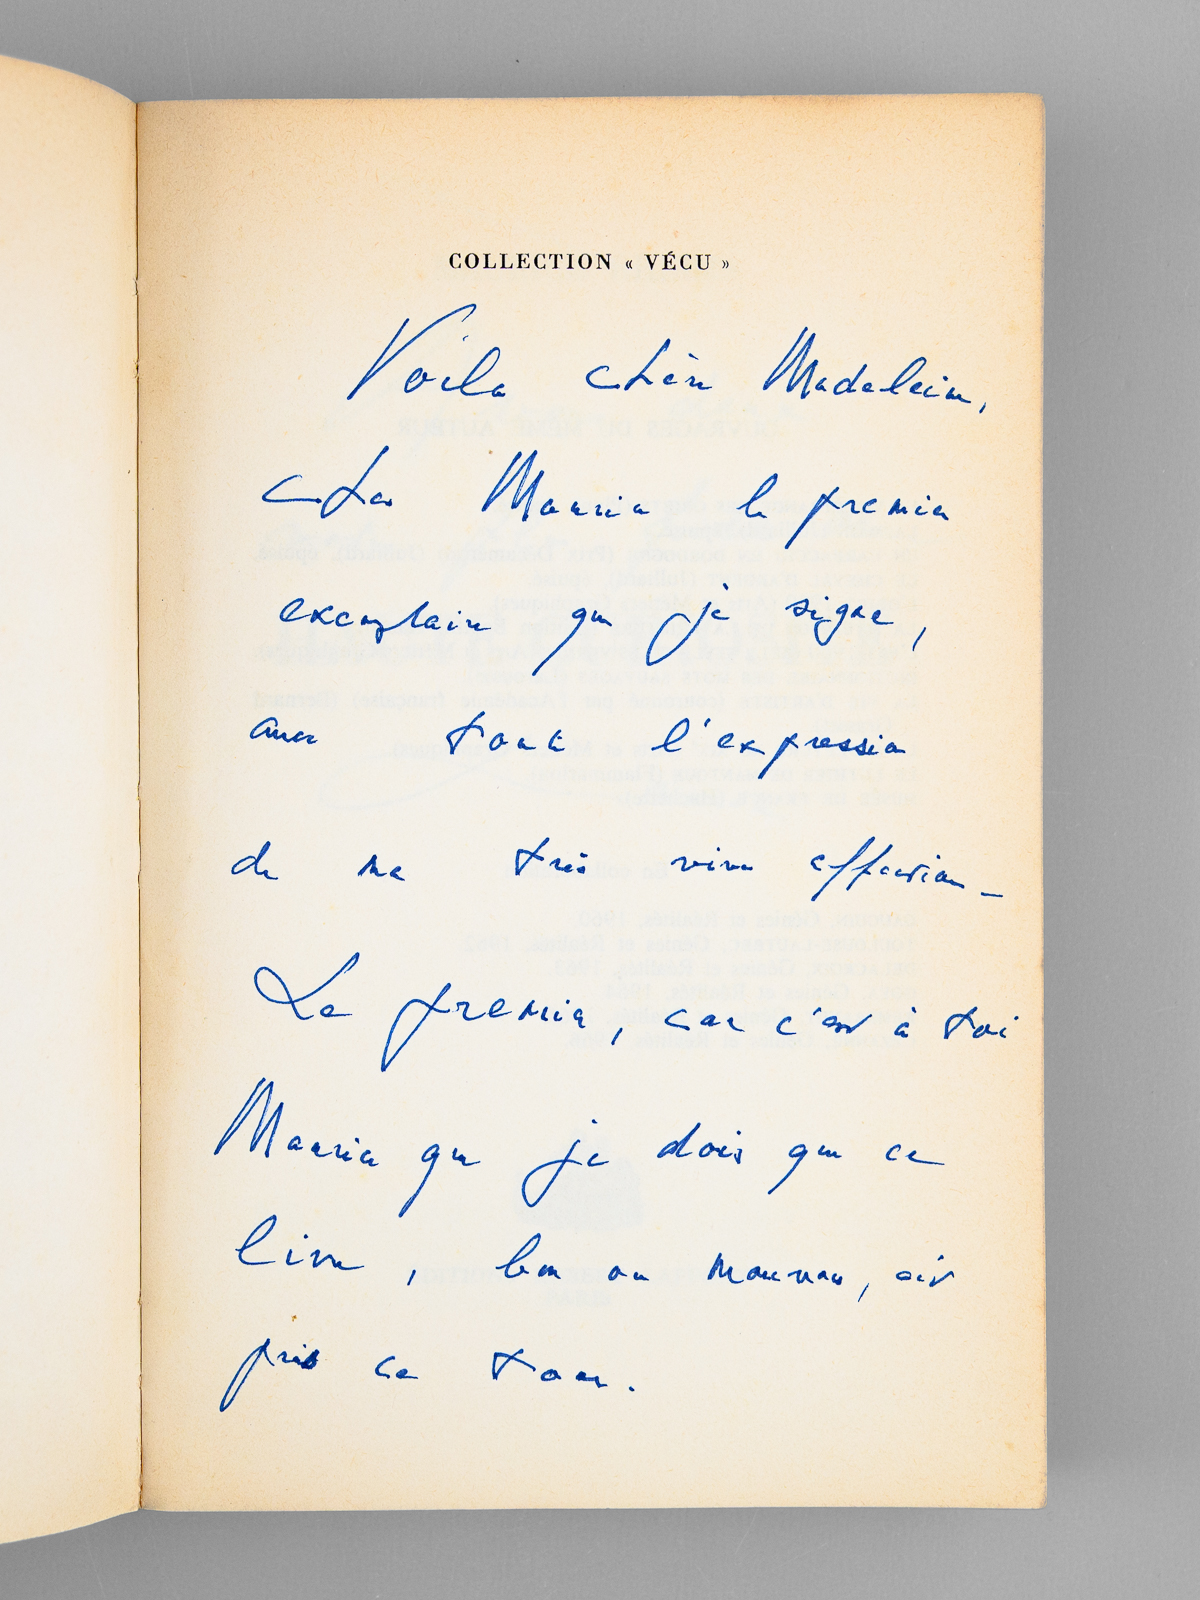 COLLECTION « VÉCU »
Voilà chère Madeleine,
cher Maurice le premier
exemplaire que je signe,
avec toute l'expression
de ma très vive affection_
Le premier, car c'est à toi
Maurice que je dois que ce
livre, bon ou mauvais, ait
pris ce tour.